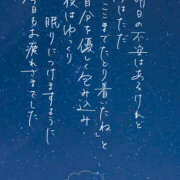 明日の不安はあるけれど
はただ
ここまでたどり着いたね」と
自分を優しく包み込み
夜はゆっくり
眠りにつけますように
今日もお疲れさまでした